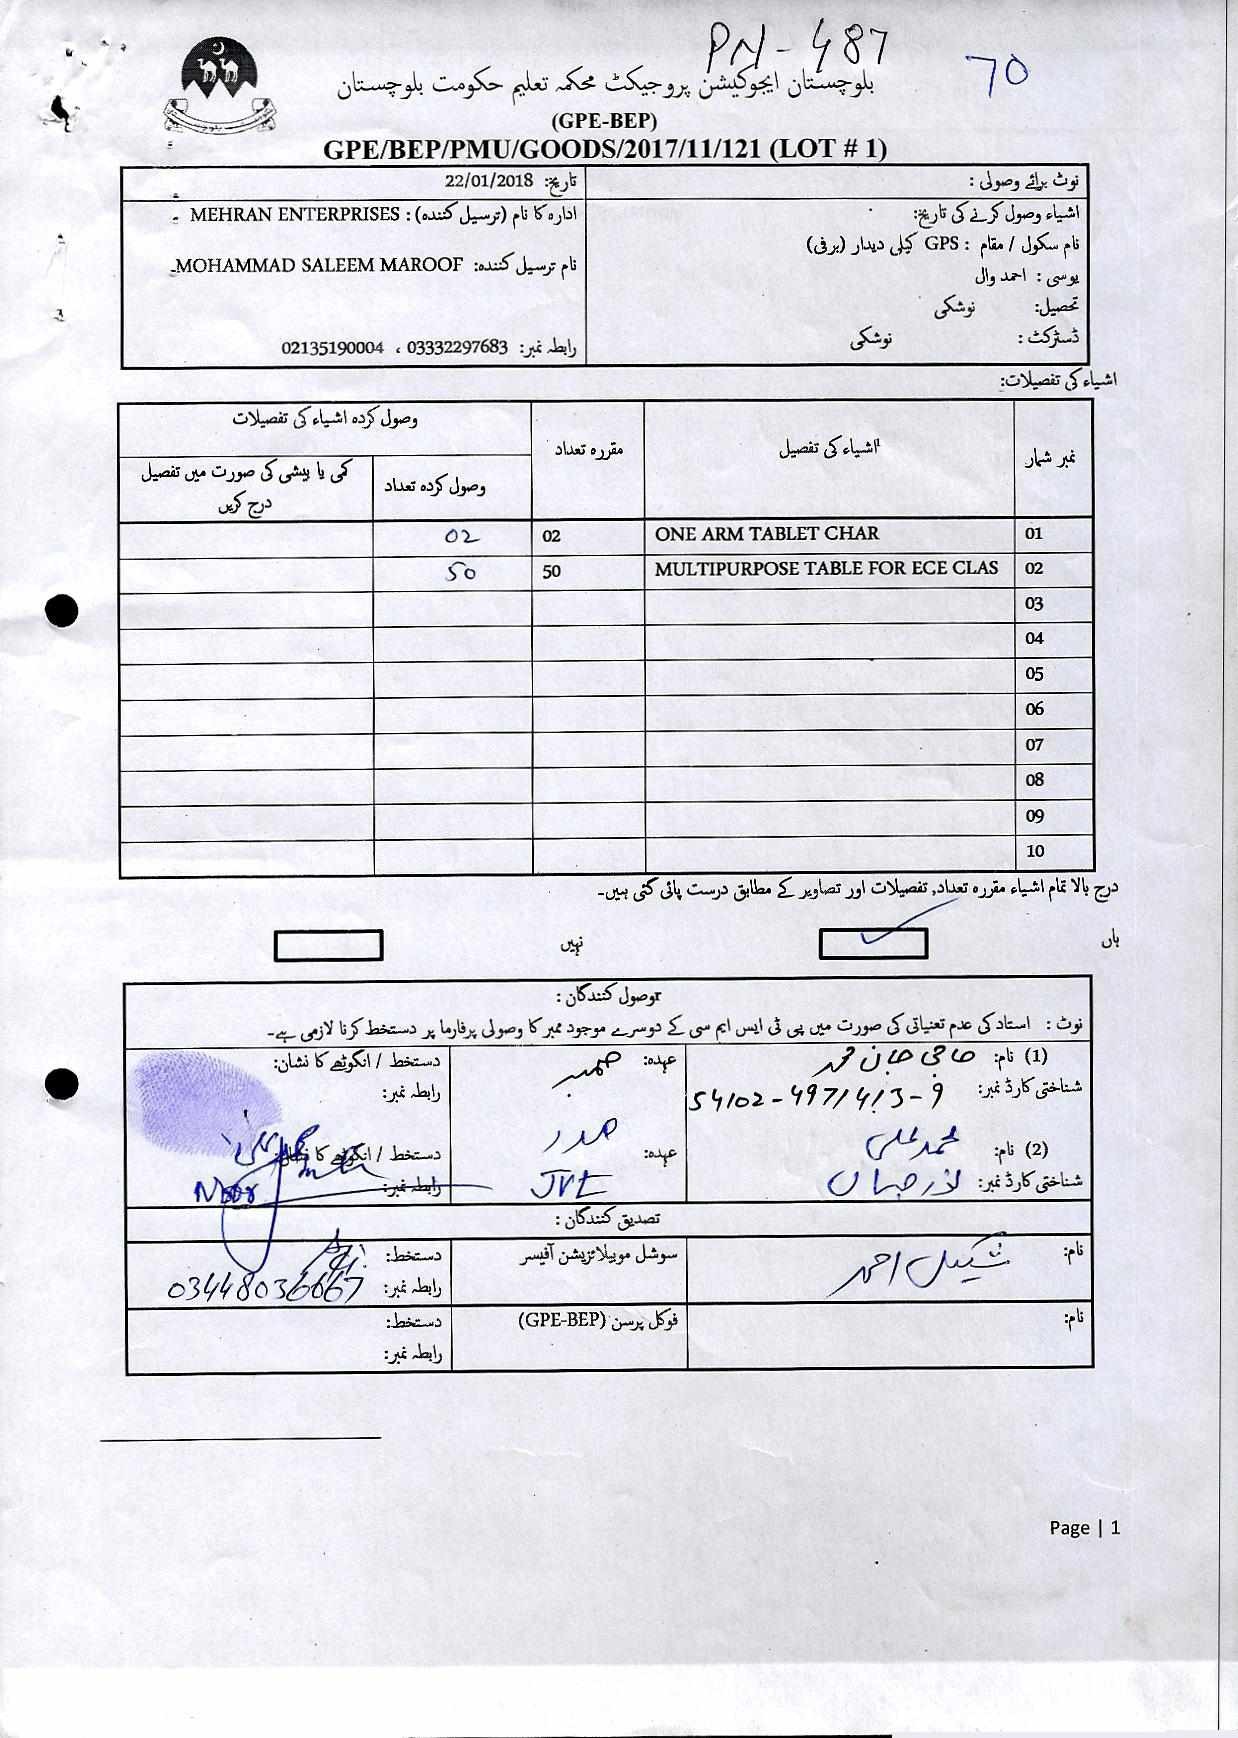 PN-487
70
بلوچستان ایجوکیشن پروجیکٹ محکمہ تعلیم حکومت بلوچستان
(GPE-BEP)
GPE/BEP/PMU/GOODS/2017/11/121 (LOT # 1)
نوٹ برائے وصولی :
تاریخ: 22/01/2018
اشیاء وصول کرنے کی تاریخ:
نام سکول / مقام : GPS کیلی دیدار (برفی)
یوسی : احمد وال
تحصیل: نوشکی
ڈسٹرکٹ : نوشکی
ادارہ کا نام (ترسیل کنندہ) : MEHRAN ENTERPRISES
نام ترسیل کنندہ: MOHAMMAD SALEEM MAROOF
رابطہ نمبر: 03332297683 ، 02135190004
اشیاء کی تفصیلات:
نمبر شمار اشیاء کی تفصیل مقررہ تعداد وصول کردہ اشیاء کی تفصیلات
وصول کردہ تعداد کمی یا بیشی کی صورت میں تفصیل درج کریں
01 ONE ARM TABLET CHAR 02 02
02 MULTIPURPOSE TABLE FOR ECE CLAS 50 50
03
04
05
06
07
08
09
10
درج بالا تمام اشیاء مقررہ تعداد, تفصیلات اور تصاویر کے مطابق درست پائی گئی ہیں۔
ہاں نہیں
وصول کنندگان :
نوٹ : استاد کی عدم تعنیاتی کی صورت میں پی ٹی ایس ایم سی کے دوسرے موجود ممبر کا وصولی پرفارما پر دستخط کرنا لازمی ہے۔
(1) نام: حاجی جان محمد عہدہ: ممبر دستخط / انگوٹھے کا نشان:
شناختی کارڈ نمبر: 54102-4971413-9 رابطہ نمبر:
(2) نام: محمد علی عہدہ: صدر دستخط / انگوٹھے کا نشان:
شناختی کارڈ نمبر: JVT رابطہ نمبر: Noor
تصدیق کنندگان :
نام: شکیل احمد سوشل موبیلائزیشن آفیسر دستخط:
رابطہ نمبر: 03448036667
نام: فوکل پرسن (GPE-BEP) دستخط:
رابطہ نمبر:
Page | 1